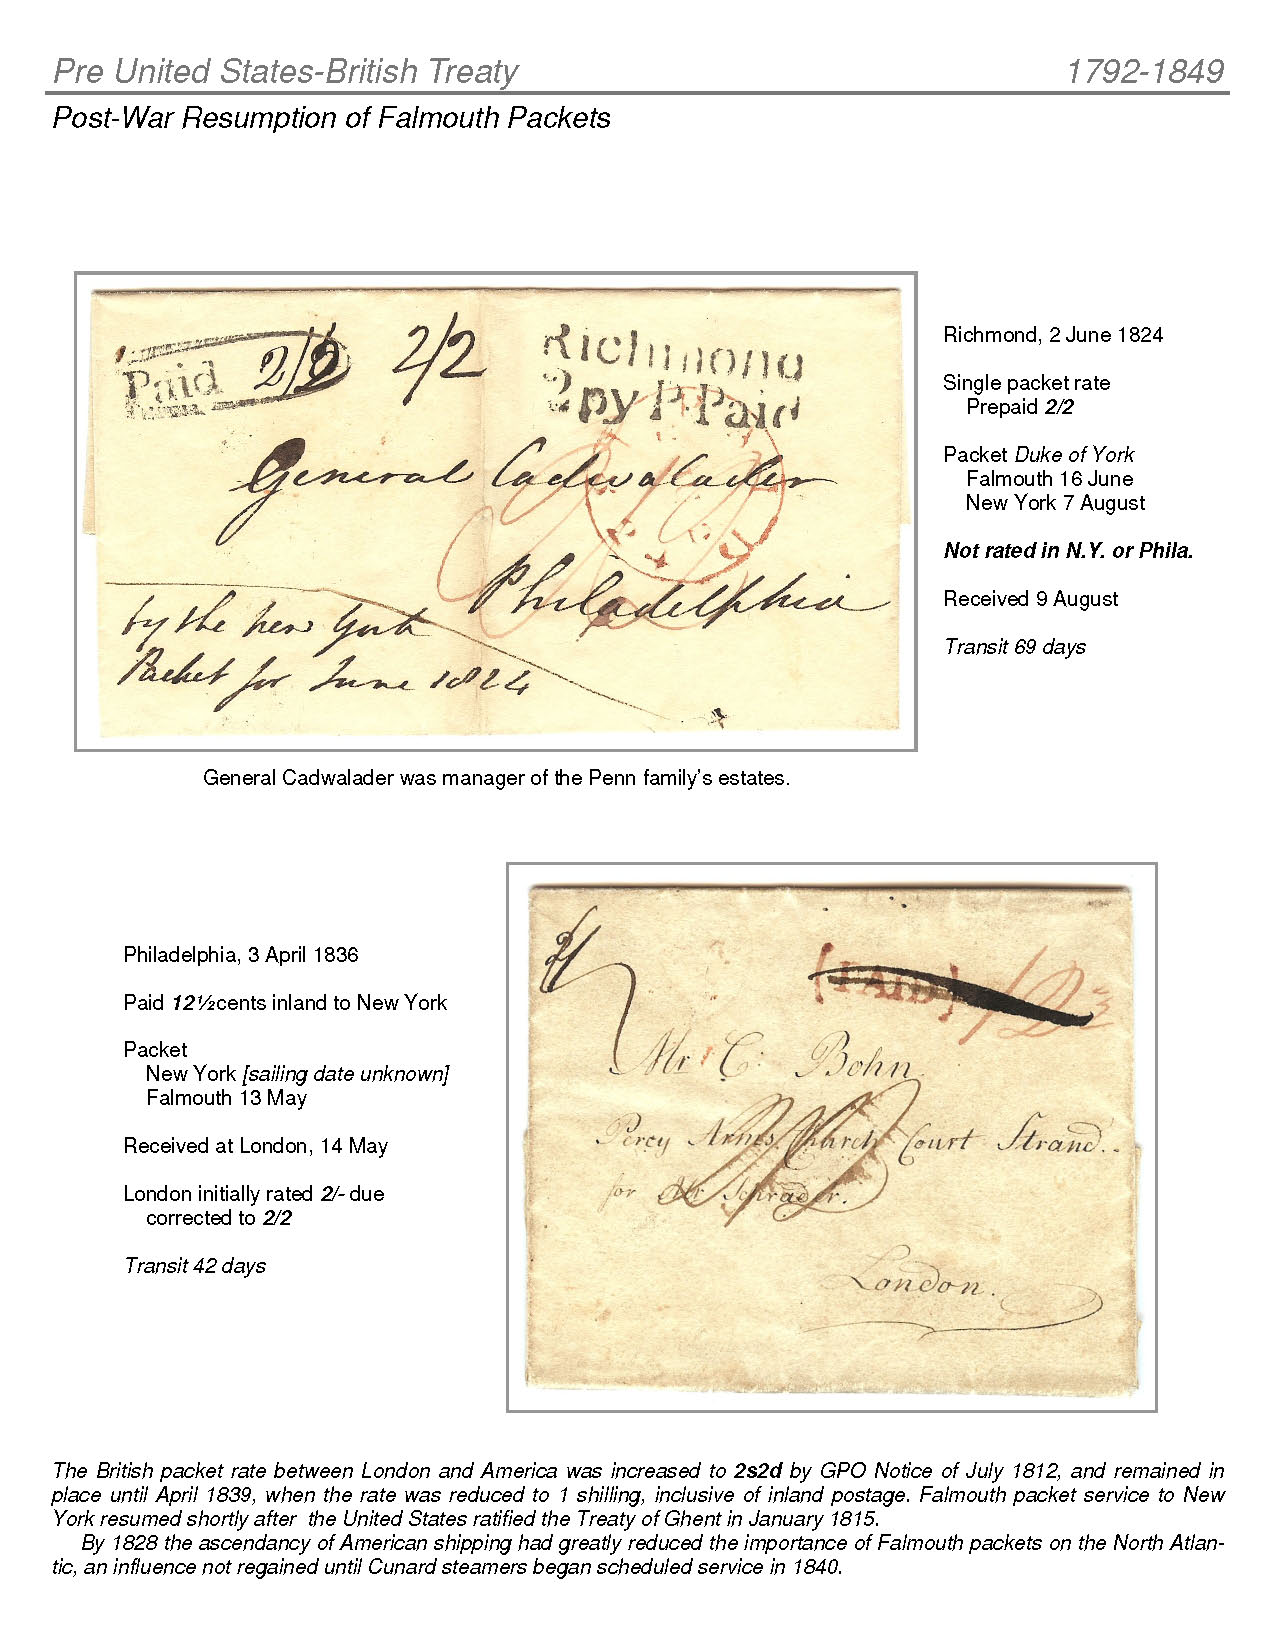 Pre United States-British Treaty 1792-1849
Post-War Resumption of Falmouth Packets
Paid 2/2 2/2 Richmond
2py P.Paid
General Cadwalader
Philadelphia
by the New York
Packet for June 1824
Richmond, 2 June 1824
Single packet rate
Prepaid 2/2
Packet Duke of York
Falmouth 16 June
New York 7 August
Not rated in N.Y. or Phila.
Received 9 August
Transit 69 days
General Cadwalader was manager of the Penn family's estates.
Philadelphia, 3 April 1836
Paid 12½cents inland to New York
Packet
New York [sailing date unknown]
Falmouth 13 May
Received at London, 14 May
London initially rated 2/- due
corrected to 2/2
Transit 42 days
2/
PAID
Mr C: Bohn
Percy Arms Church Court Strand..
for Mr Schrader.
London.
The British packet rate between London and America was increased to 2s2d by GPO Notice of July 1812, and remained in
place until April 1839, when the rate was reduced to 1 shilling, inclusive of inland postage. Falmouth packet service to New
York resumed shortly after the United States ratified the Treaty of Ghent in January 1815.
By 1828 the ascendancy of American shipping had greatly reduced the importance of Falmouth packets on the North Atlan-
tic, an influence not regained until Cunard steamers began scheduled service in 1840.